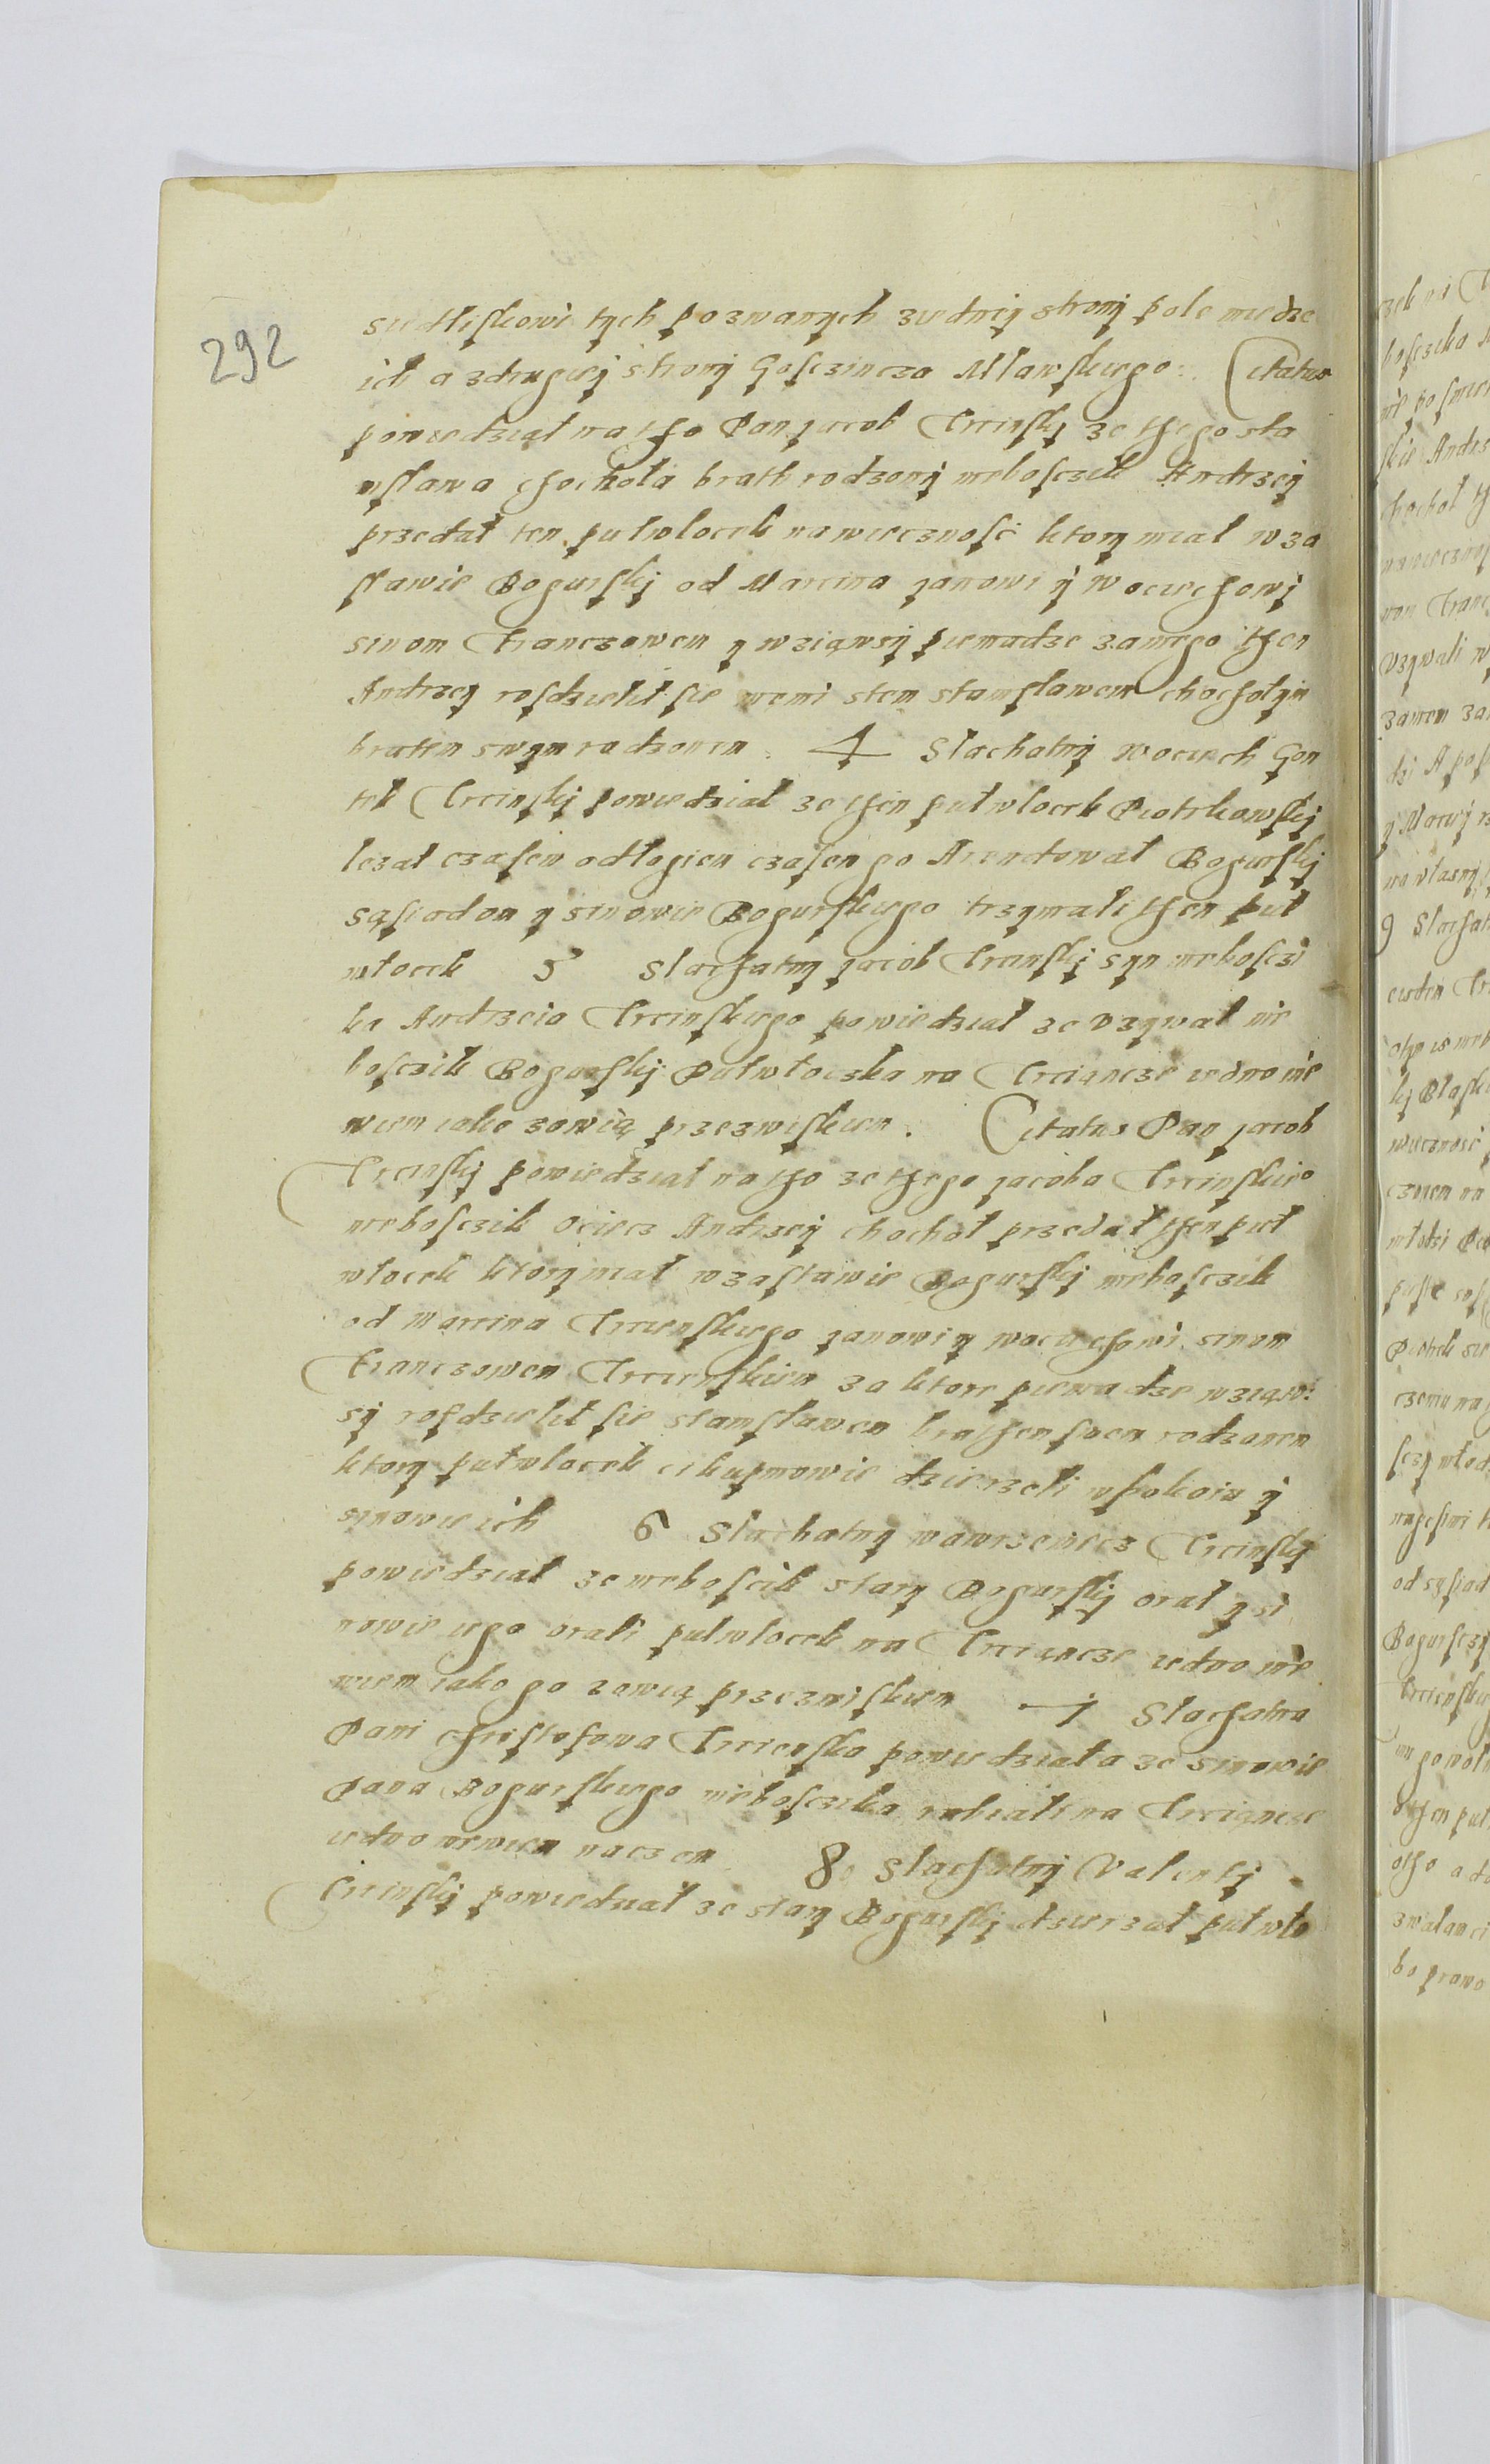 292
siedliskowi tych pozwanych ziedny strony pole miedze
ich a zdrugiey strony Gosczincza Mlawskiego: Citatus
powiedział na tho Pan Jacob Krcinsky ze thego sta
nisława Chochoła brath rodzony nieboscziik Andrzey
przedał ten pułwłocek na wiecznosci ktory miał w za
stawie Bogursky od Marcina Janowi y Wociechowi
sinom Franczowem y wziąwsy pieniadze zaniego then
Andrzey rosdzielił sie wemi stem stanisławem chochołym
bratem swym radzonem. 4 Slachatny wociech Gon
tek Krcinsky powiedział ze then pułwłocek Piotrkowsky
lezał czasem odłogiem czasem go Arendował Bogursky
sąsiadom y sinowie Bogurskiego trzymali then puł
włocek 5 Slachatny Jacob Krcinsky syn niebosczi
ka Andrzeia Krcinskiego powiedział ze vzywał nie
bosczik Bogursky Pułwłoczka na Krciąncze iedno nie
wiem iako zowią przezwiskiem. Citatus Pan Jacob
Krcinsky powiedział na tho ze thego Jacoba Krcinskie°
niebosczik ociecz Andrzey chochoł przedał then puł
włocek ktory miał w zastawie Bogursky niebosczik
od Marcina Krcienskiego Janowi y wociechowi sinom
Franczowem Krcienskiem za ktore pieniadze wziąw:
sy rosdzielił sie stanisławem brathem swem rodzonem
ktory pułwłocek ci kupnowie dzierzeli w pokoiu y
sinowie ich 6 Slachatny wawrzeniecz Krcinsky
powiedział ze nieboscik stary Bogursky orał y si
nowie iego orali pułwłocek na Krciąncze iedno nie
wiem iako go zowią przezwiskiem 7 Slachatna
Pani Christofowa Krcienska powiedziała ze sinowie
Pana Bogurskiego nieboscziika robiali na Krciancze
iedno niewiem naczem 8 Slachatny Valenty
Krcinsky powiedział ze stary Bogursky dzierzał pułwło